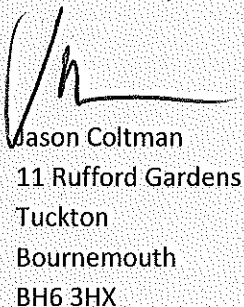 Jason Coltman
11 Rufford Gardens
Tuckton
Bournemouth
BH6 3HX